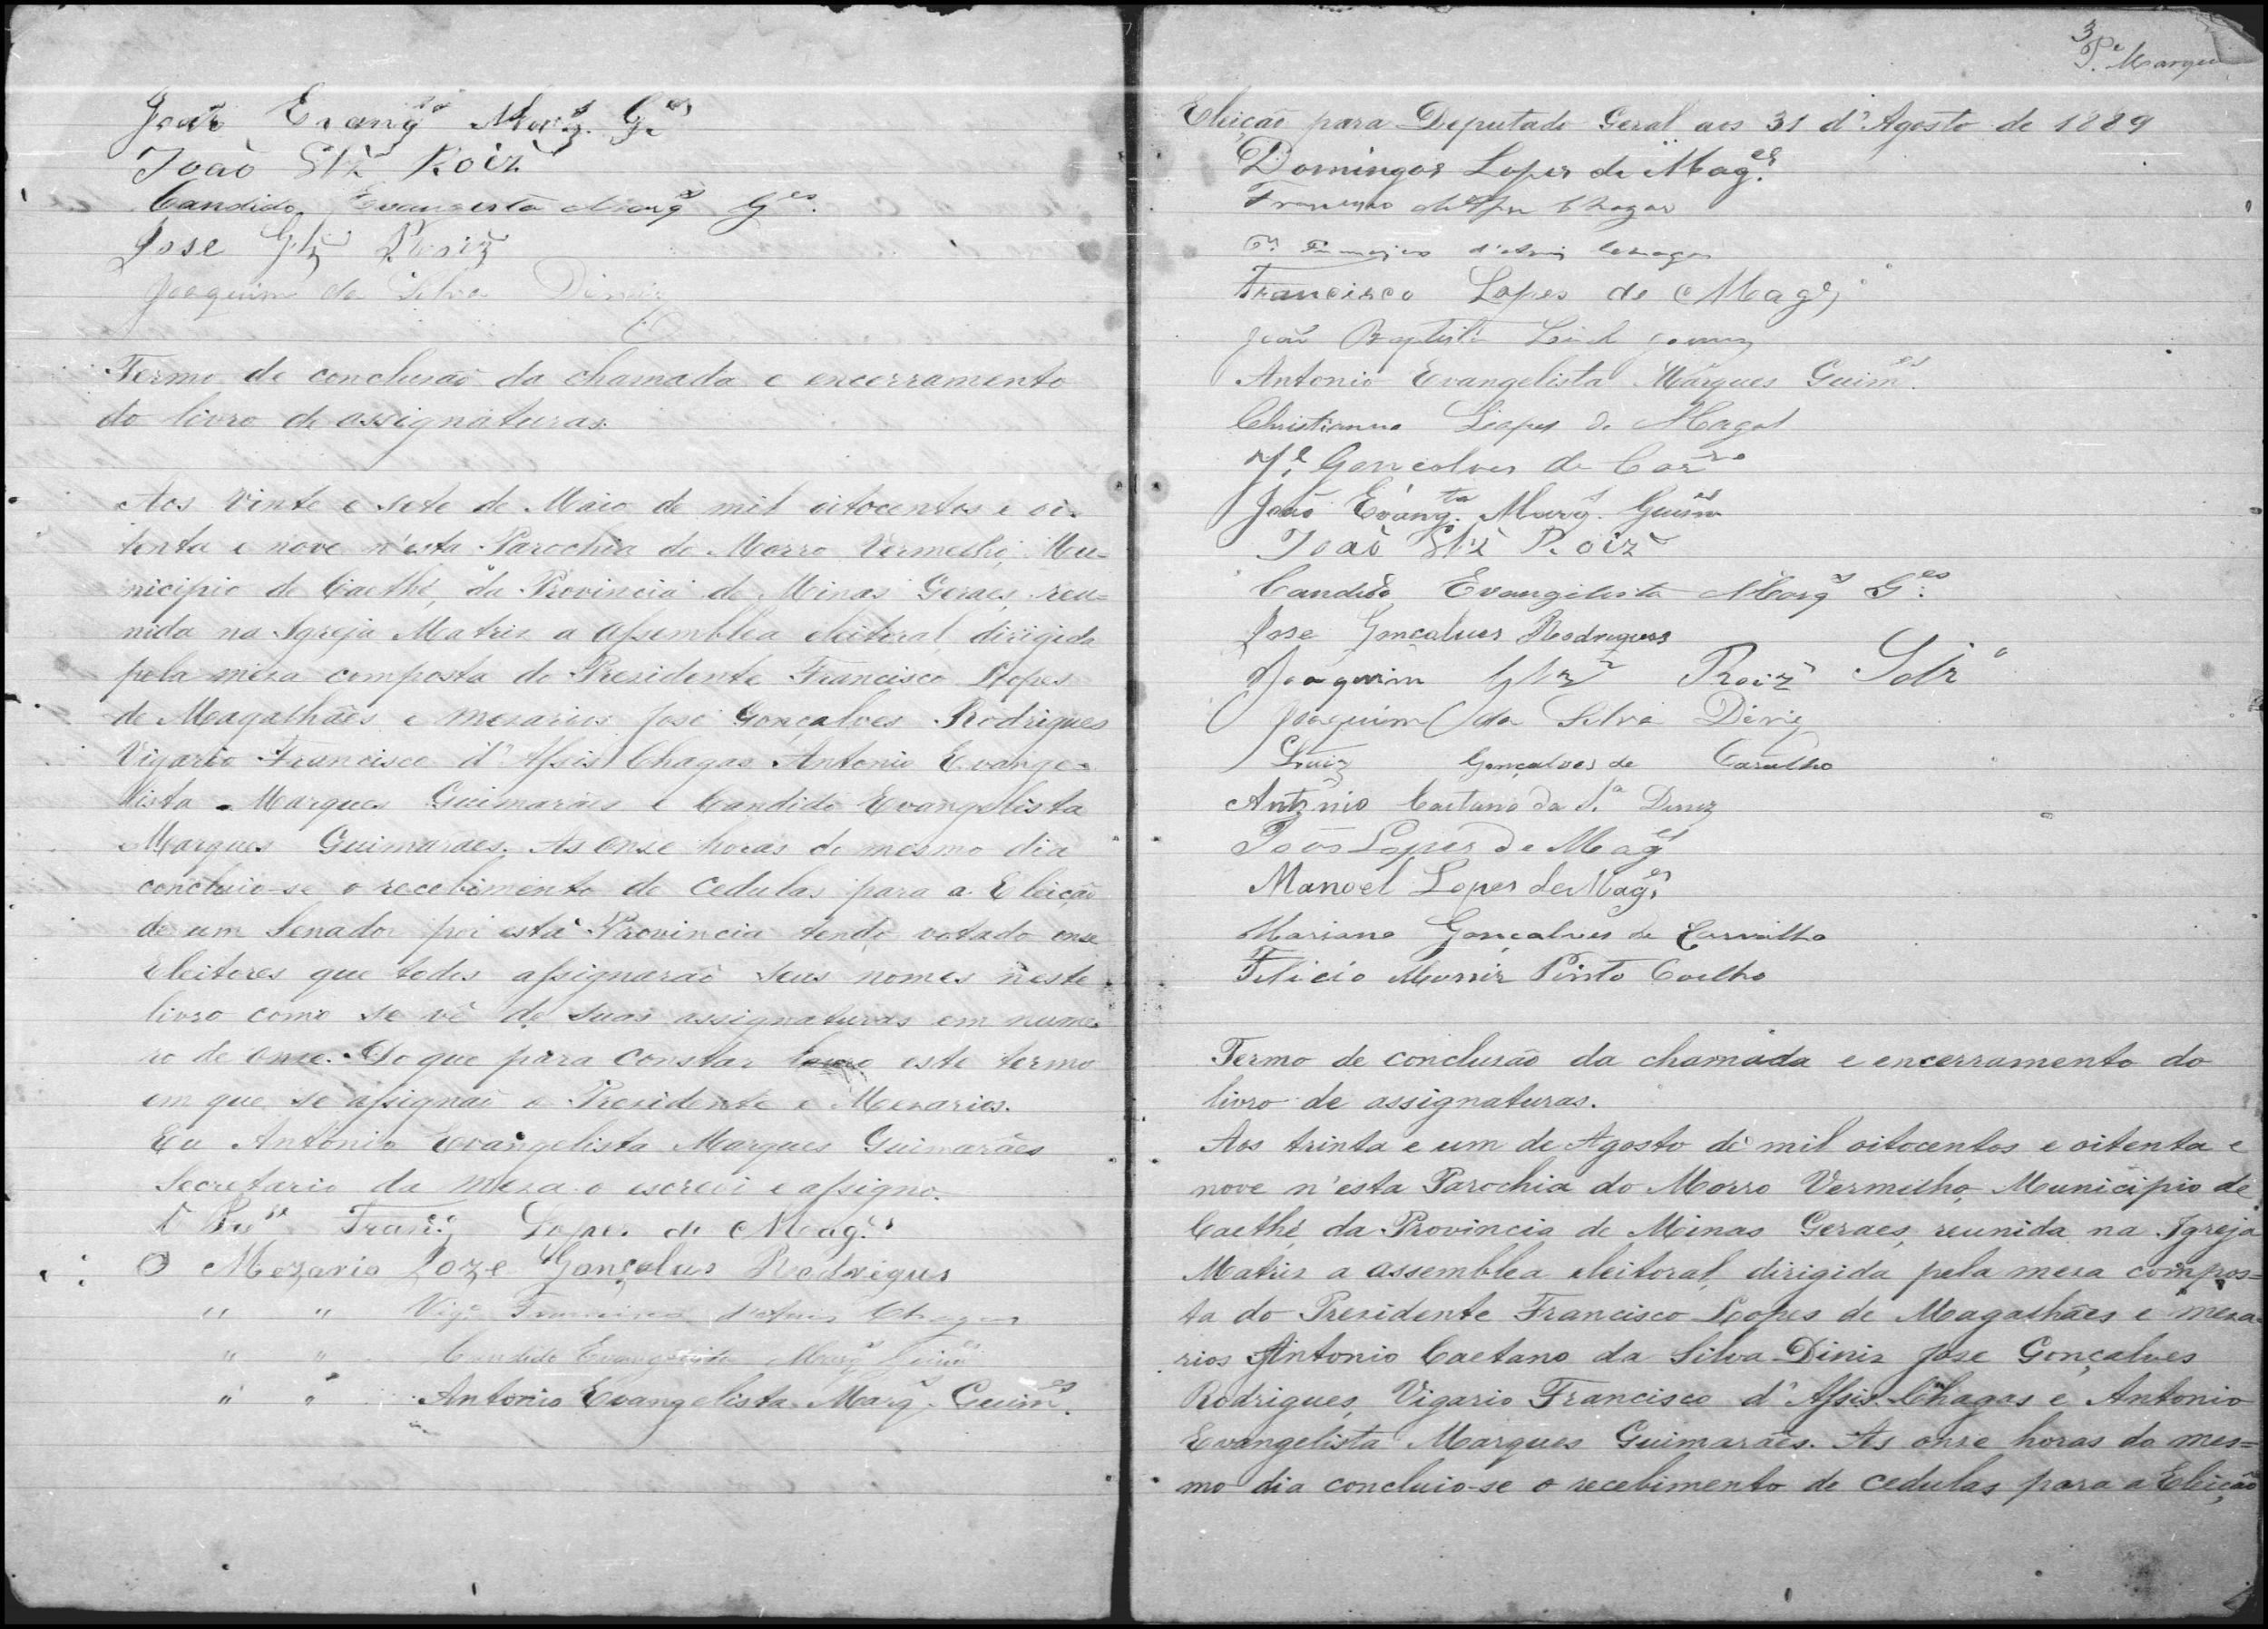 João Evang.ta Marq.s G.es
João Glz Roiz
Candido Evangelista Marq.s G.es
Jose Glz Roiz
Joaquim da Silva Diniz
Termo de conclusaõ da chamada e encerramento
do livro de assignaturas.
Aos vinte e sete de Maio de mil oitocentos e oi-
tenta e nove n'esta Parochia do Morro Vermelho, Mu-
nicipio de Caethé, da Provincia de Minas Geraes, reu-
nida na Igreja Matriz a assemblea eleitoral, dirigida
pela mesa composta do Presidente Francisco Lopes
de Magalhães e mesarios José Gonçalves Rodrigues
Vigario Francisco d'Assis Chagas Antonio Evange-
lista Marques Guimarães e Candido Evangelista
Marques Guimarães. As onse horas do mesmo dia
concluio-se o recebimento de cedulas para a Eleição
de um Senador por esta Provincia tendo votado onse
Eleitores que todos assignaraõ seus nomes n'este
livro como se vê de suas assignaturas em nume-
ro de onse. Do que para constar lavro este termo
em que se assignaõ o Presidente e Mesarios.
Eu Antonio Evangelista Marques Guimarães
Secretario da mesa o escrevi e assigno.
O Pre.se Fran.co Lopes de Mag.es
O Mezario Joze Gonçalves Rodrigues
" " Vig.o Francisco d'Assis Chagas
" " Candido Evangelista Marq.s Guim.es
" " Antonio Evangelista Marq.s Guim.es
3
P.e Marques
Eleição para Deputado Geral aos 31 d'Agosto de 1889
Domingos Lopes de Mag.es
Francisco Chagas
Francisco d'Assis Chagas
Francisco Lopes de Mag.es
João Baptista Gomes
Antonio Evangelista Marques Guim.es
Christianno Lopes de Magal
Gonçalves de Car.ro
João Evang.ta Marq.s Guim.es
João Glz Roiz
Candido Evangelista Marq.s G.es
Jose Goncalves Rodrigues
Joaquim Glz Roiz Sobr.o
Joaquim da Silva Diniz
Luiz Gonçalves de Carvalho
Antonio Caetano da S.a Diniz
João Lopes de Mag.es
Manoel Lopes de Mag.es
Mariano Gonçalves de Carvalho
Felicio Moniz Pinto Coelho
Termo de conclusão da chamada e encerramento do
livro de assignaturas.
Aos trinta e um de Agosto de mil oitocentos e oitenta e
nove n'esta Parochia do Morro Vermelho, Municipio de
Caethé, da Provincia de Minas Geraes, reunida na Igreja
Matriz a assemblea eleitoral, dirigida pela mesa compos=
ta do Presidente Francisco Lopes de Magalhães e mesa-
rios Antonio Caetano da Silva Diniz Jose Gonçalves
Rodrigues, Vigario Francisco d'Assis Chagas e Antonio
Evangelista Marques Guimarães. As onse horas do mes=
mo dia concluio-se o recebimento de cedulas para a Eleição